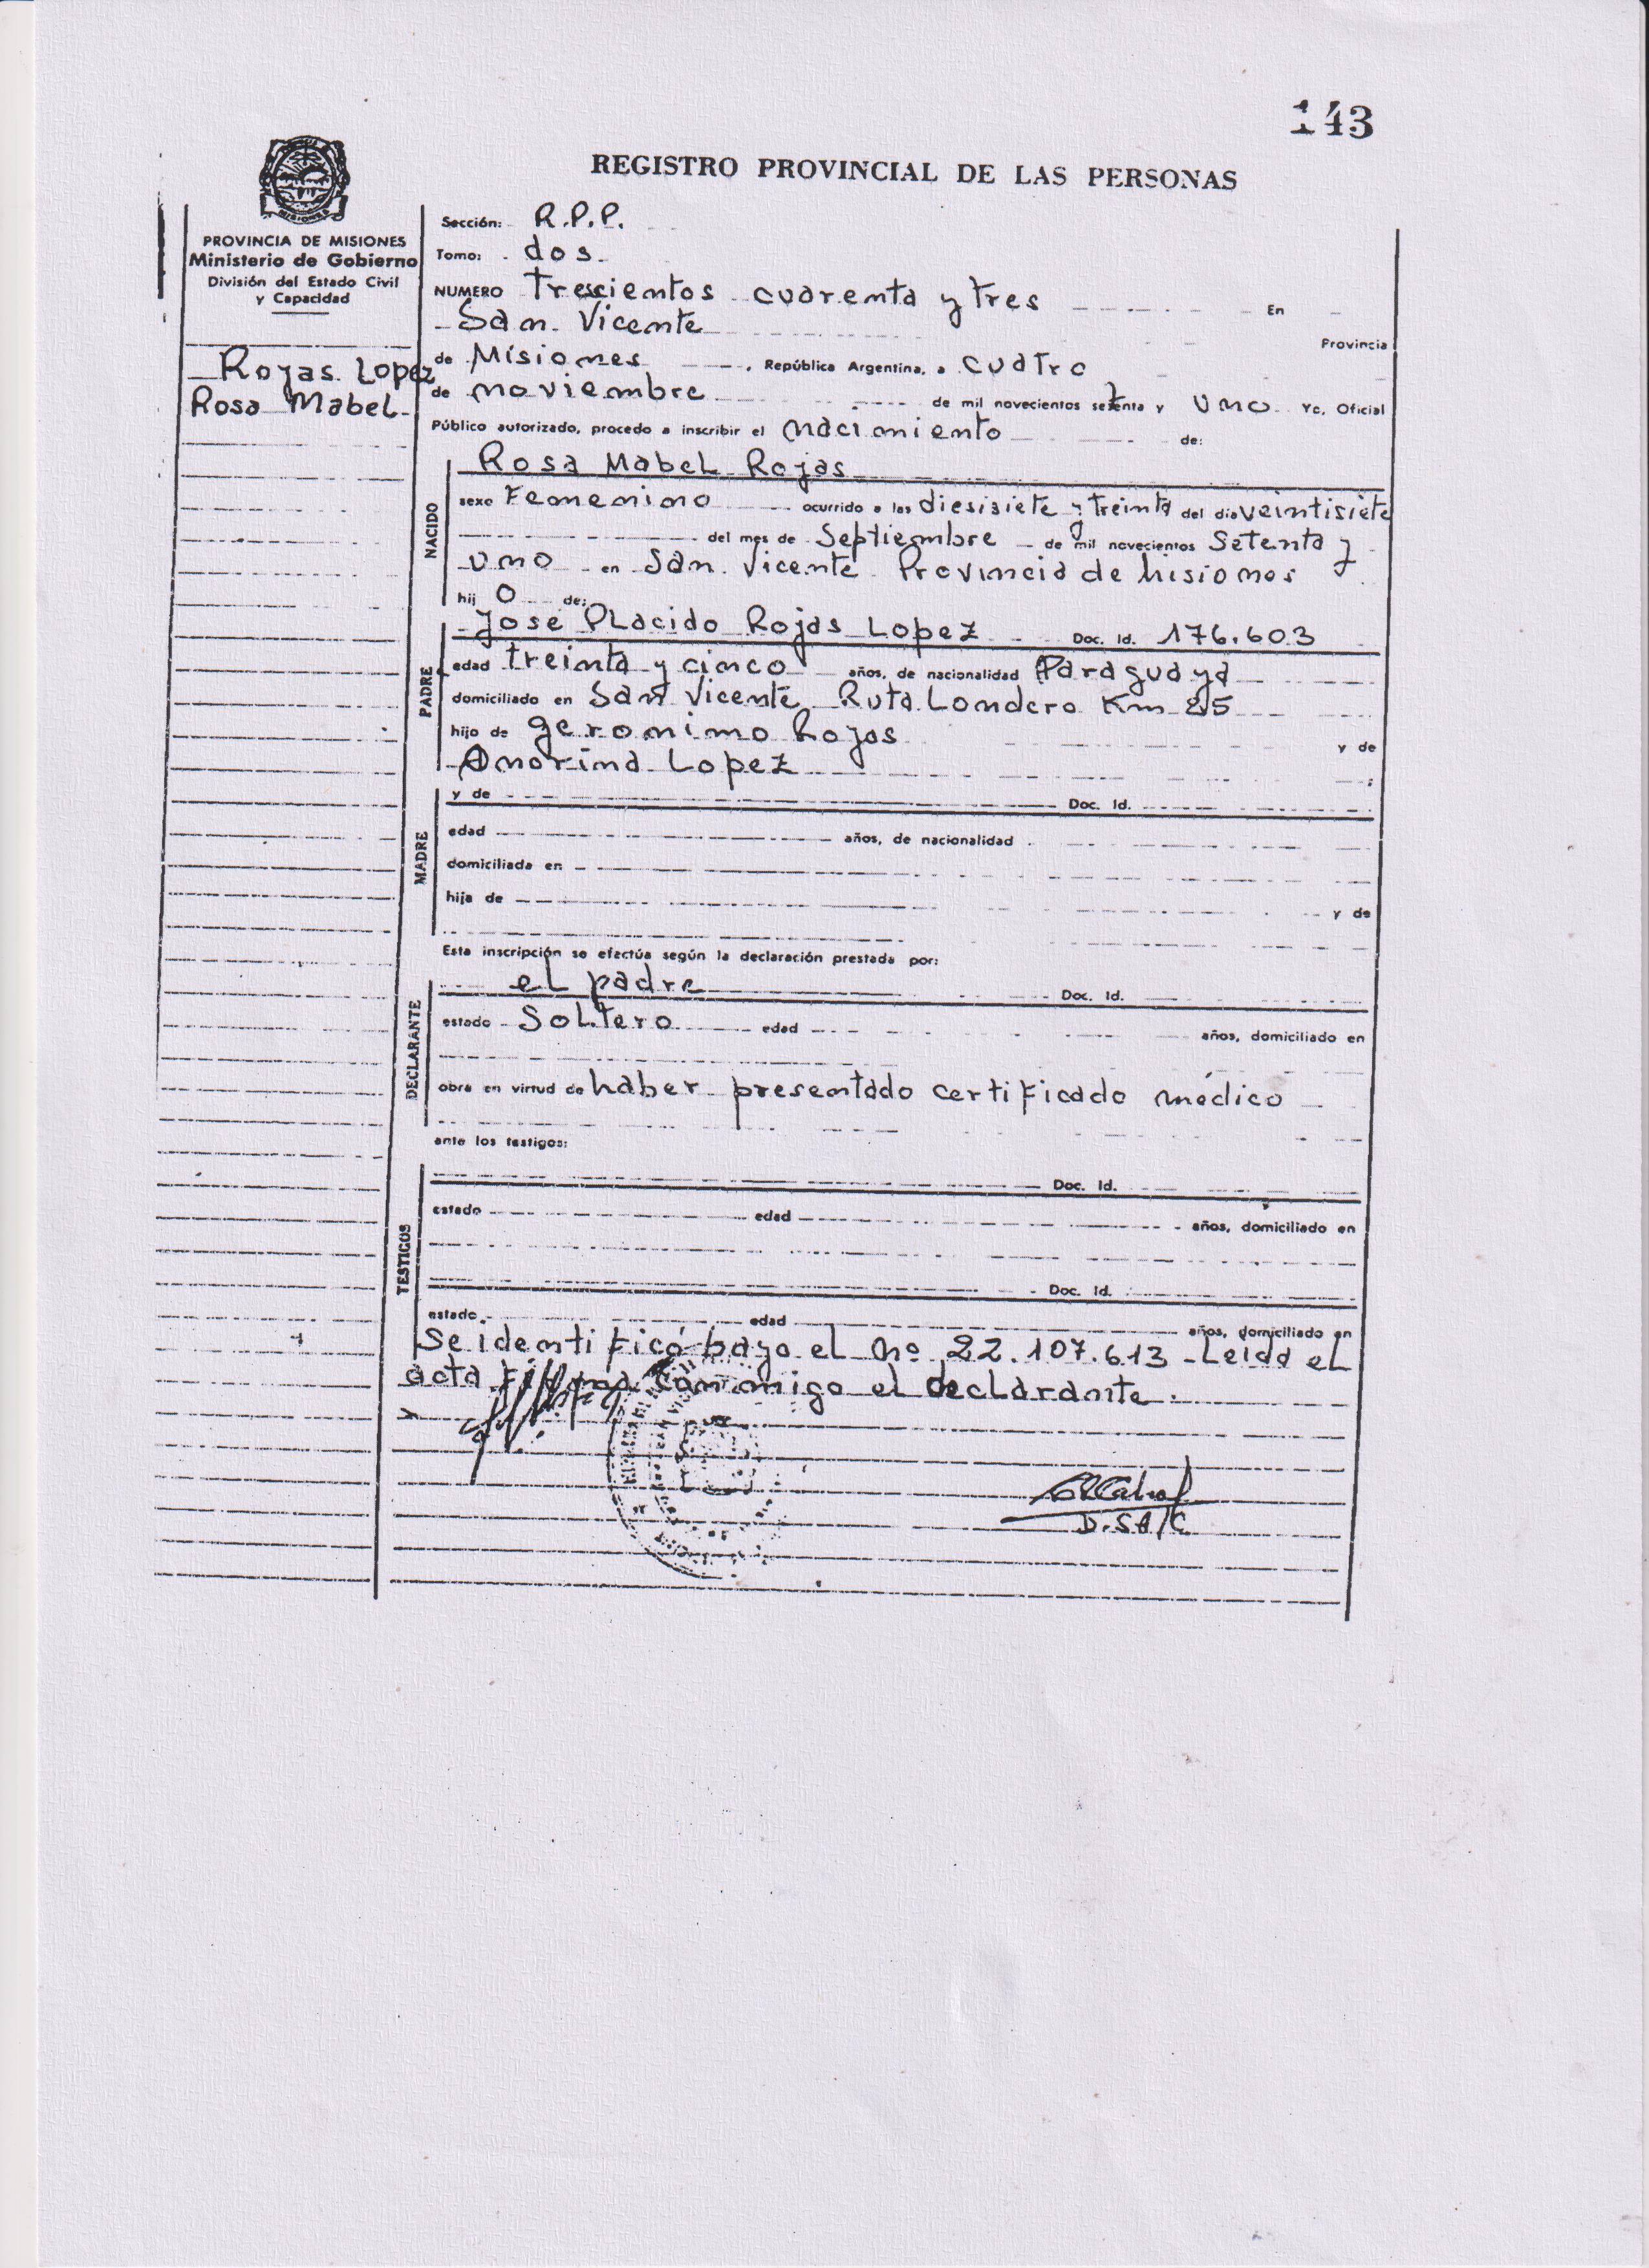 143
REGISTRO PROVINCIAL DE LAS PERSONAS
MISIONES
PROVINCIA DE MISIONES
Ministerio de Gobierno
División del Estado Civil
y Capacidad
Rojas Lopez
Rosa Mabel
Sección: R.P.P.
Tomo: dos
NUMERO Trescientos cuarenta y tres En
San Vicente Provincia
de Misiones, República Argentina, a cuatro
de noviembre de mil novecientos setenta y uno Yo, Oficial
Público autorizado, procedo a inscribir el nacimiento de:
NACIDO
Rosa Mabel Rojas
sexo Femenino ocurrido a las diesisiete y treinta del día veintisiete
del mes de Septiembre de mil novecientos Setenta y
uno en San Vicente Provincia de Misiones
hij o de:
PADRE
Jose Placido Rojas Lopez Doc. Id. 176.603
edad treinta y cinco años, de nacionalidad Paraguaya
domiciliado en San Vicente Ruta Londero Km
hijo de Geronimo Rojas y de
Lopez ;
MADRE
y de Doc. Id.
edad años, de nacionalidad
domiciliada en
hija de y de
Esta inscripción se efectúa según la declaración prestada por:
DECLARANTE
el padre Doc. Id.
estado Soltero edad años, domiciliado en
obra en virtud de haber presentado certificado médico
ante los testigos:
TESTIGOS
Doc. Id.
estado edad años, domiciliado en
Doc. Id.
estado edad años, domiciliado en
Se identificó bajo el nº 22.107.613 - Leida el
acta firma conmigo el declarante.